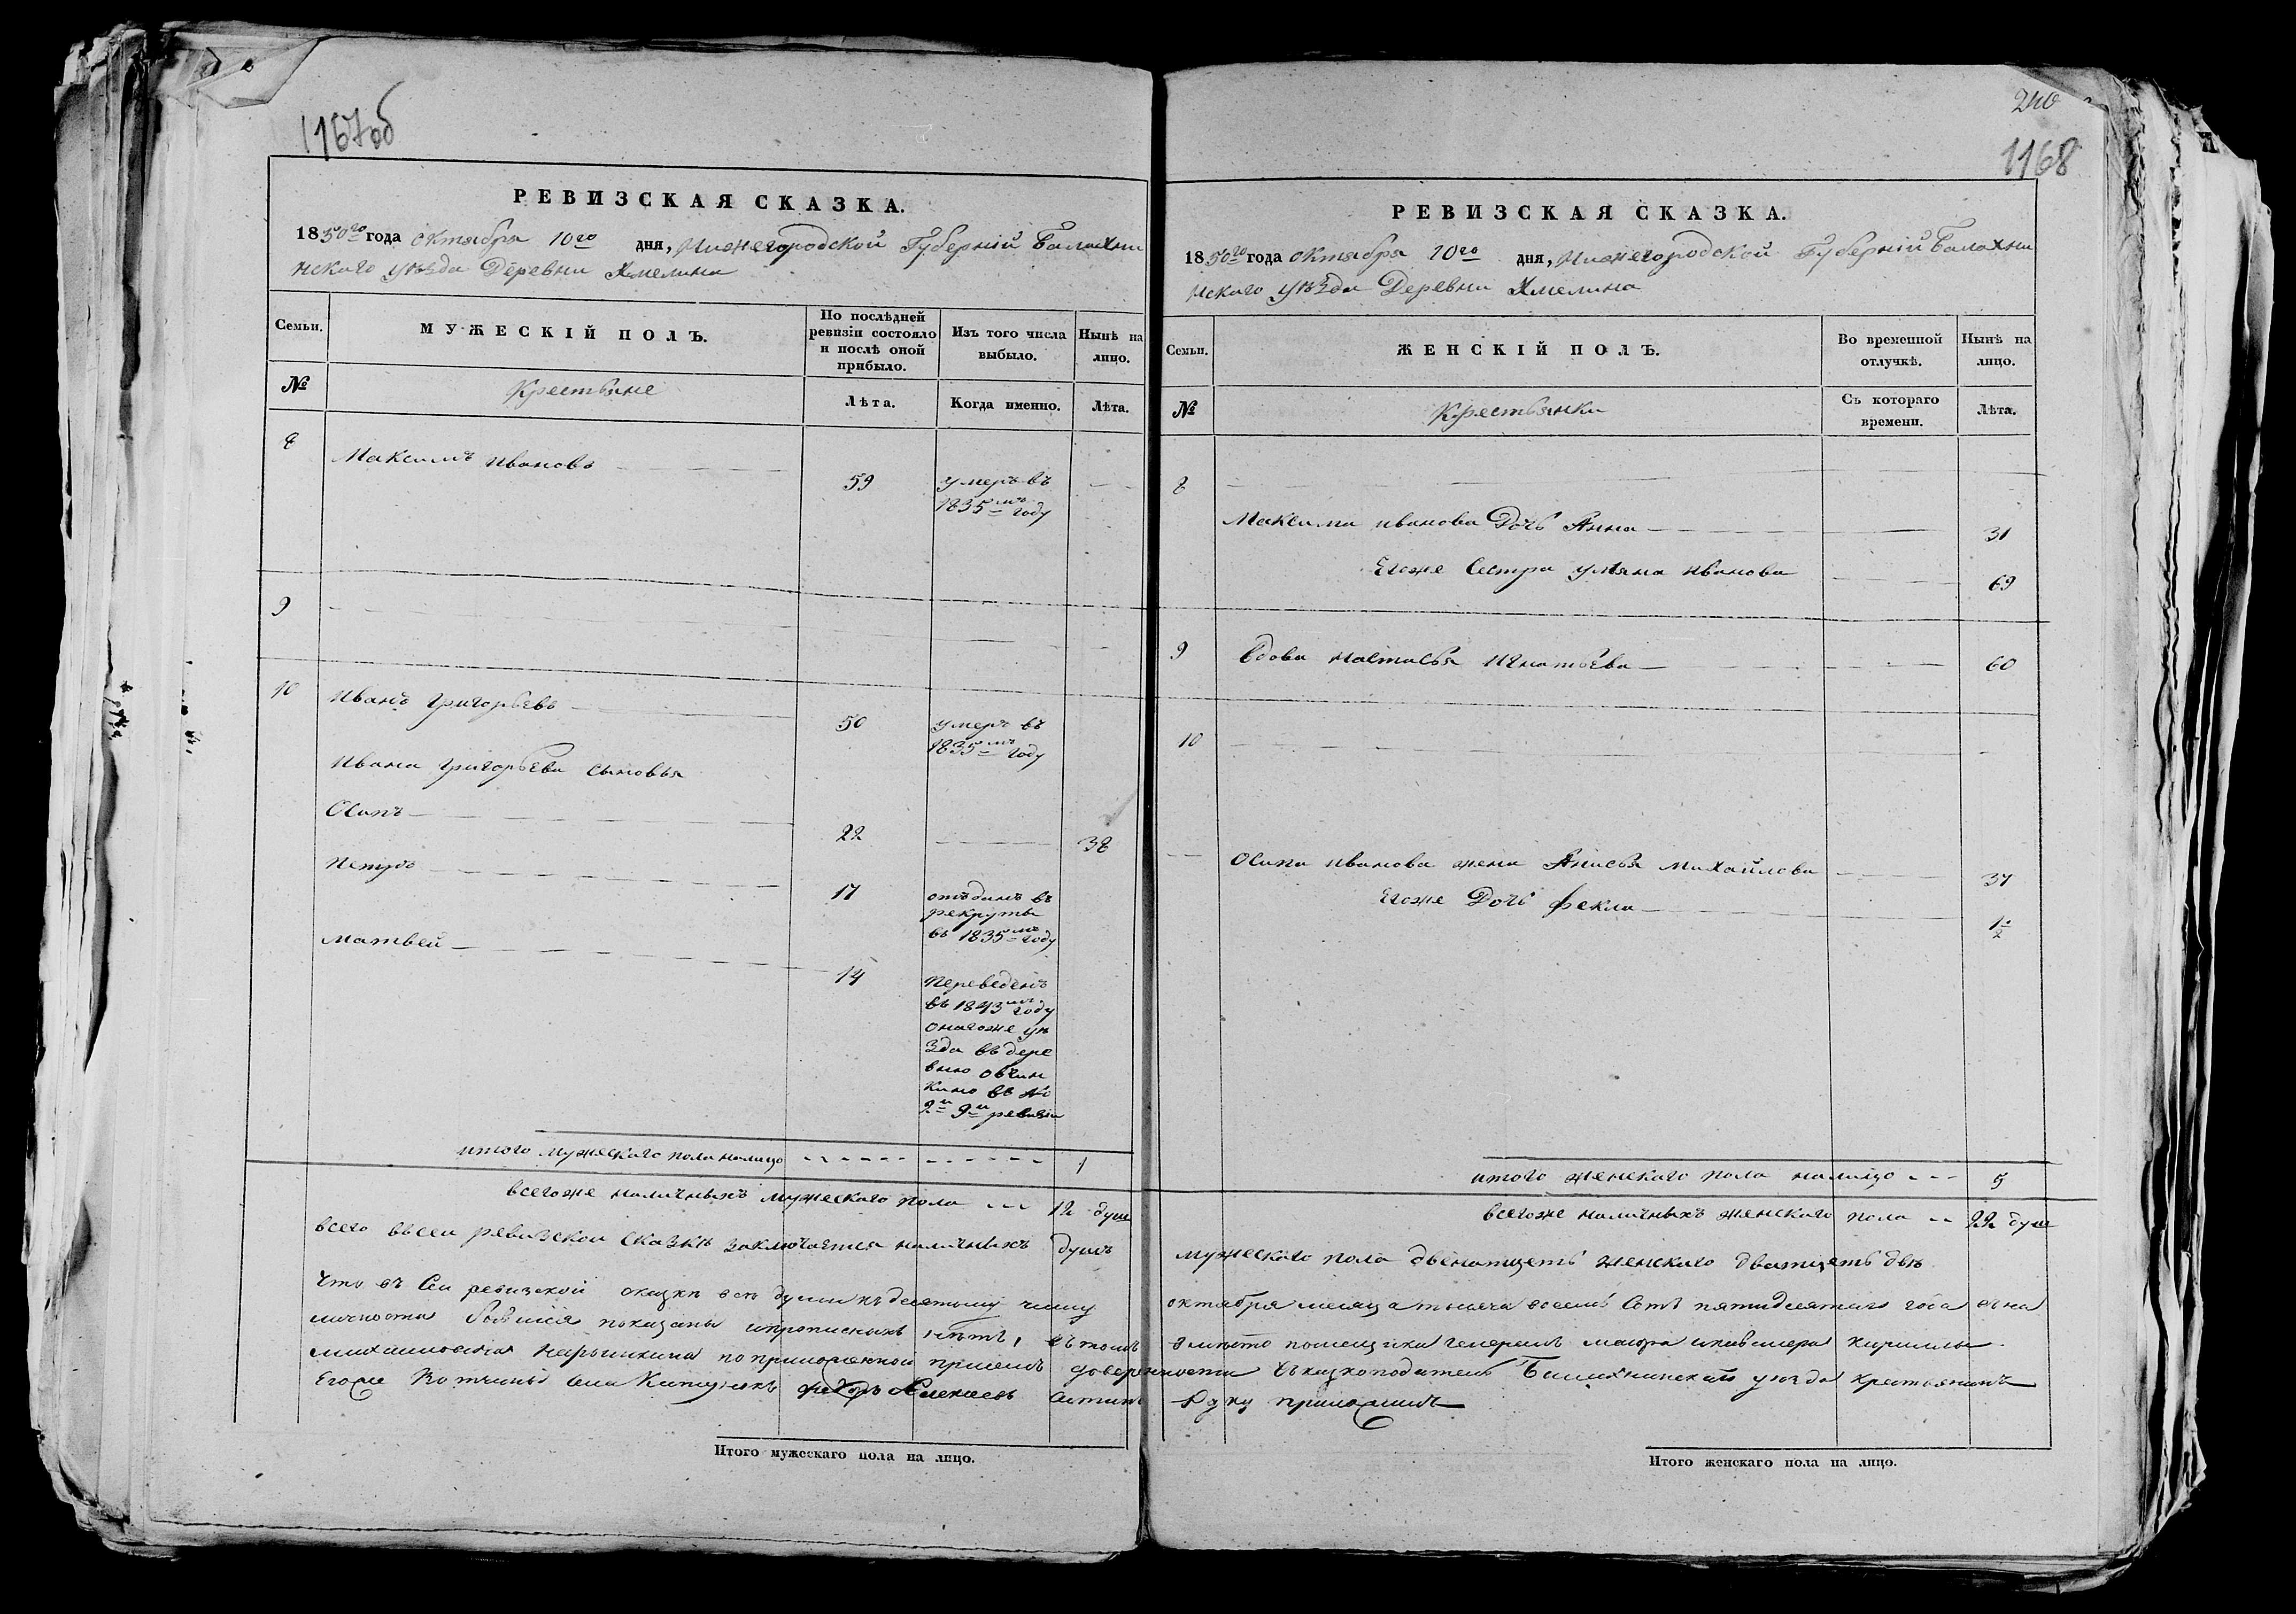 1167об
РЕВИЗСКАЯ СКАЗКА.
1850го года октября 10го дня, Нижегородской Губерніи Балахни
нскаго уѣзда Деревни Хмелина
Семьи.
МУЖЕСКІЙ ПОЛЪ.
По послѣдней
ревизіи состояло
и послѣ оной
прибыло.
Изъ того числа
выбыло.
Нынѣ на
лицо.
№
Крестьяне
Лѣта.
Когда именно.
Лѣта.
8
Максимъ Ивановъ
59
умеръ въ
1835мъ году
9
10
Иванъ Григорьевъ
50
умеръ въ
1835мъ году
Ивана Григорьева сыновья
Осипъ
22
38
Петръ
17
отъданъ въ
рекруты
въ 1835мъ году
Матвей
14
Переведенъ
въ 1843мъ году
оногоже уѣ
зда въ дере
вню Овчин
кино въ №
2й 9й ревизіи
итого мужескаго пола налицо 1
всегоже наличныхъ мужескаго пола 12 душ
всего въсеи ревизскои сказкѣ заключается наличныхъ душъ
Что въ сеи ревизской сказкѣ всѣ души къ десятому числу
личности бывшія показаны ипрописныхъ нѣтъ, въ томъ
Михаиловича Нарышкина поприложенной присемъ доверенности
Егоже Вотчины села Федоръ Алексеевъ
240
1168
РЕВИЗСКАЯ СКАЗКА.
1850го года октября 10го дня, Нижегородской Губерніи Балахни
нскаго уѣзда Деревни Хмелина
Семьи.
ЖЕНСКІЙ ПОЛЪ.
Во временной
отлучкѣ.
Нынѣ на
лицо.
№
Крестьянки
Съ котораго
времени.
Лѣта.
8
Максима Иванова Дочь Анна
31
Егоже Сестра Уляна Иванова
69
9
Вдова Настасья Игнатьева
60
10
Осипа Иванова жена Анисья Михайлова
37
Егоже Дочь Фекла
1/2
итого женскаго пола налицо 5
всегоже наличныхъ женскаго пола 22 душ
мужескаго пола двенатцеть женскаго дватцеть двѣ
октября месяца тысяча восемь Сотъ пятидесятаго года
вместо помещика генералъ маіора икавалера Кирилы
Сказкоподатель Балахнинскаго уезда крестьянинъ
Руку приложилъ
Итого мужескаго пола на лицо.
Итого женскаго пола на лицо.